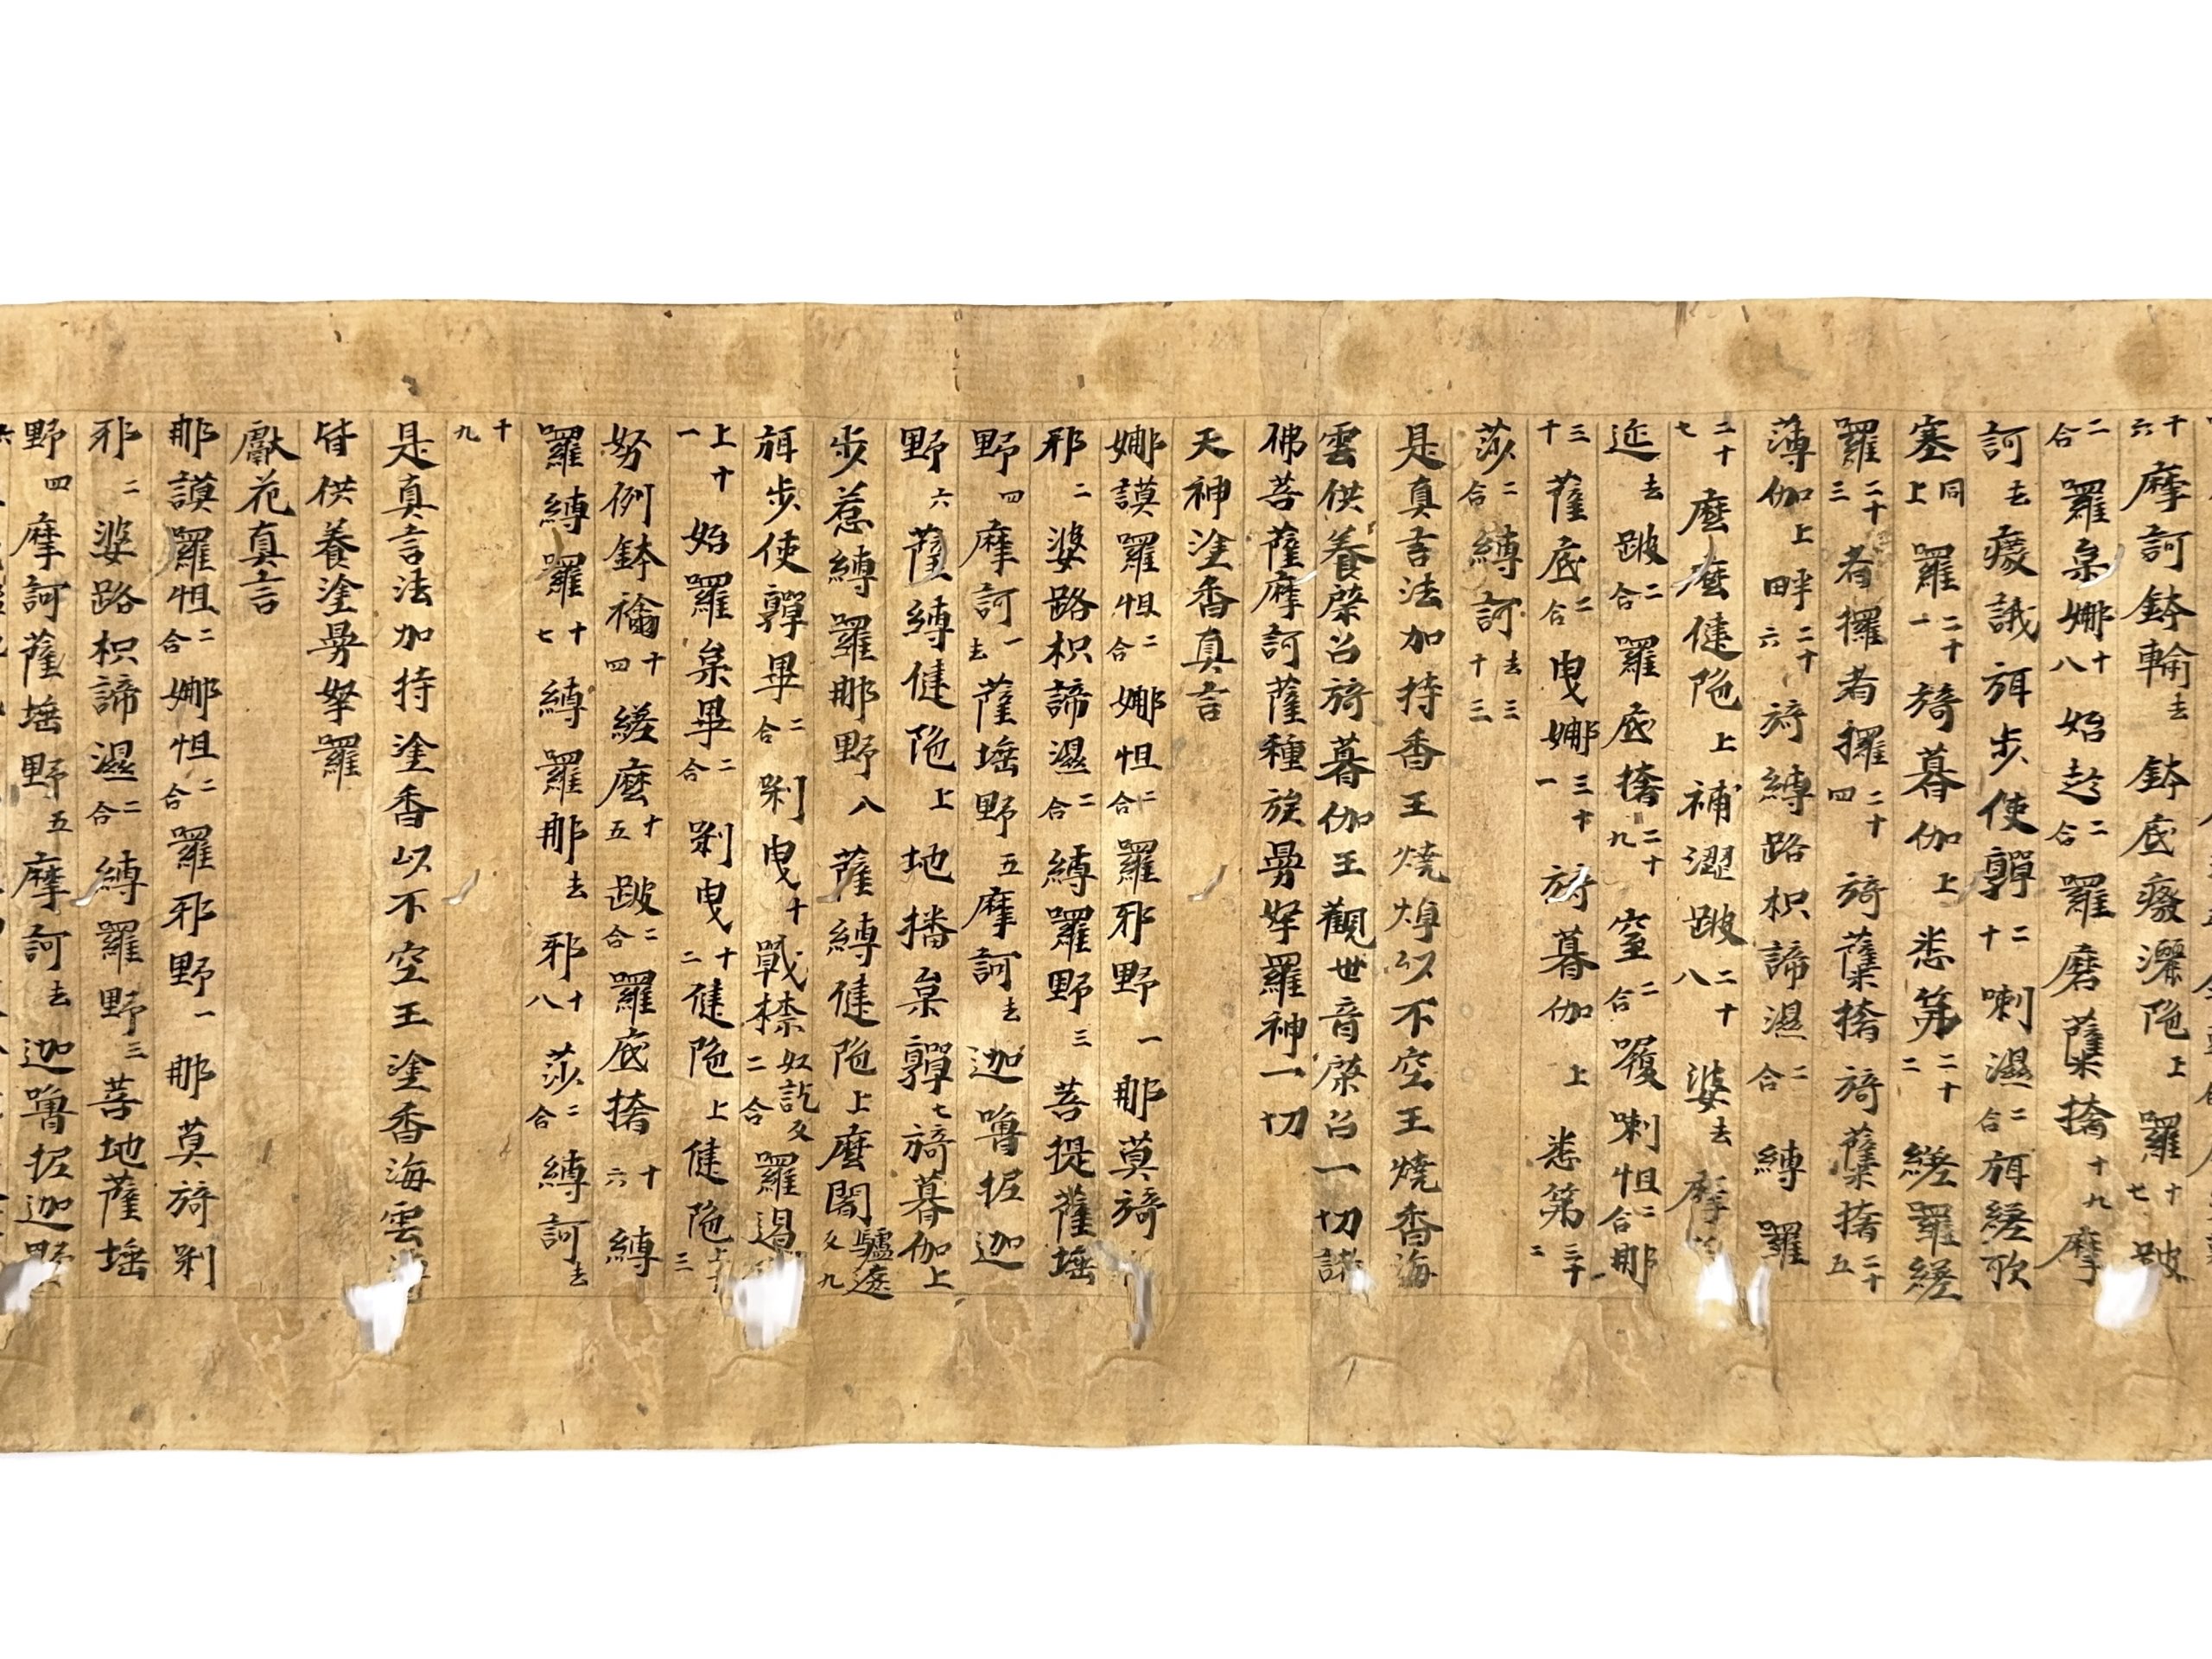 十六摩訶鉢輸去鉢底癈灑陁上羅十七跛
二合羅枲娜十八始趍二合羅磨薩㰆㨋十九摩
訶去癈誐旃步使鸐二十喇濕二合旃縒歌
塞同上羅二十一旖暮伽上悉第二十二縒羅縒
羅二十三者攞者攞二十四旖㰆㨋旖㰆㨋二十五
薄伽上畔二十六旖縛路枳諦濕二合縛羅
二十七麼麼健陁上補澀跛二十八婆去摩
迊去跛二合羅底㨋二十九窒二合履喇怛二合那
三十薩底二合曳娜三十一旖暮伽上悉第三十二
莎二合縛訶去三十三
是真言法加持香王燒焯以不空王燒香海
雲供養啓召旖暮伽王觀世音啓召一切諸
佛菩薩摩訶薩種族曼拏羅神一切
天神塗香真言
娜謨羅怛二合娜怛二合羅邪野一那莫旖
邪二婆路枳諦濕二合縛羅野三菩提薩埵
野四摩訶去薩埵野五摩訶去迦嚕抳迦
野六薩縛健陁上地播枲鸐七旖暮伽上
步惹縛羅那野八薩縛健陁上麼闍驢遮反九
旃步使鸐畢二合剎曳十戰㮈奴訖反二合羅遏
上十一始羅枲畢二合剎曳十二健陁上健陁上十三
努例鉢襘十四縒麼十五跛二合羅底㨋十六縛
羅縛羅十七縛羅那去邪十八莎二合縛訶去
十九
是真言法加持塗香以不空王塗香海雲海
皆供養塗曼拏羅
獻花真言
那謨羅怛二合娜怛二合羅邪野一那莫旖剎
邪二婆路枳諦濕二合縛羅野三菩地薩埵
野四摩訶薩埵野五摩訶去迦嚕抳迦野